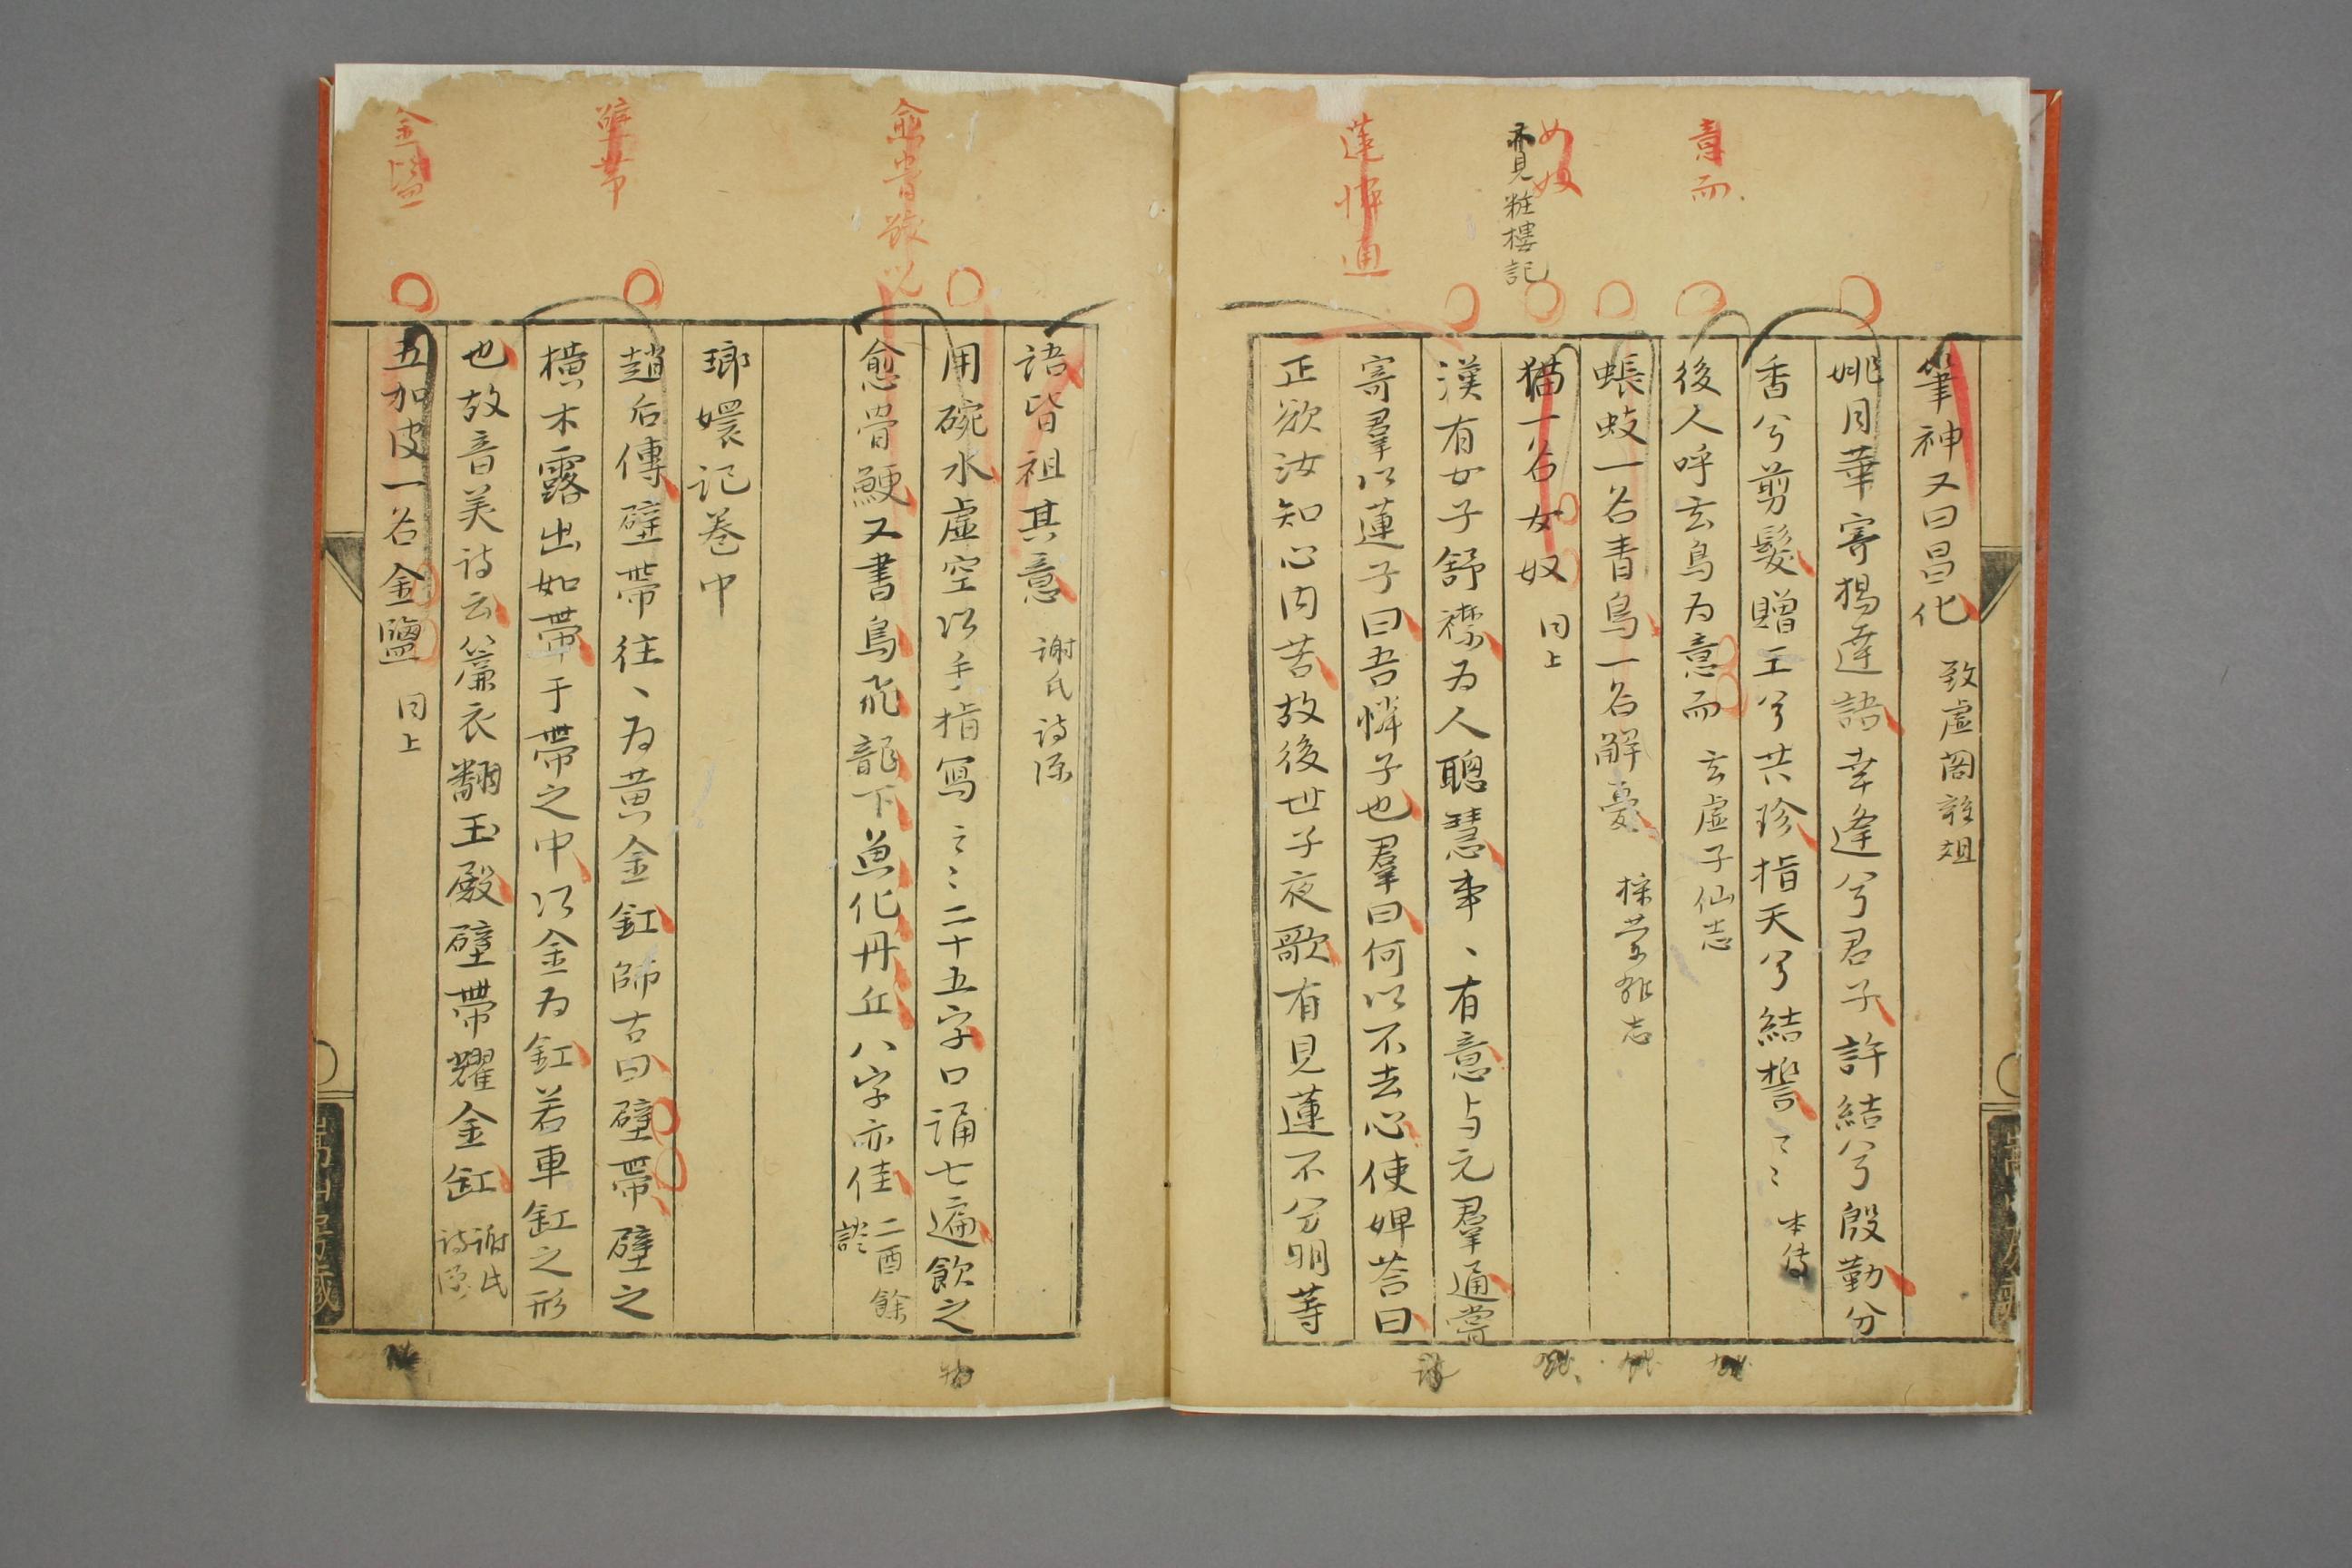 意而
女奴
亦見粧樓記
蓮憐通
筆神又曰昌化 致虛閣雜俎
姚月華寄楊達語幸逢兮君子許結兮殷勤分
香兮剪髮贈玉兮共珍指天兮結誓〻〻 本傳
後人呼玄鳥为意而 玄虛子仙志
蜧蚑一名青鳥一名解憂 採蘭雜志
猫一名女奴 同上
漢有女子舒襟为人聰慧事〻有意与元羣通嘗
寄羣以蓮子曰吾憐子也羣曰何以不去心使婢荅曰
正欲汝知心内苦故後世子夜歌有見蓮不分明等
語皆祖其意 謝氏詩源
愈骨鯁咒
壁帶
金鹽
用碗水虛空以手指寫〻〻二十五字口誦七遍飲之
愈骨鯁又書鳥飛龍下魚化丹丘八字亦佳 二酉餘
談
瑯嬛記卷中
趙后傳壁帶往〻为黄金釭師古曰壁帶壁之
橫木露出如帶于帶之中以金为釭若車釭之形
也故音美詩云簾衣翻玉殿壁帶耀金釭 謝氏
詩源
五加皮一名金鹽 同上